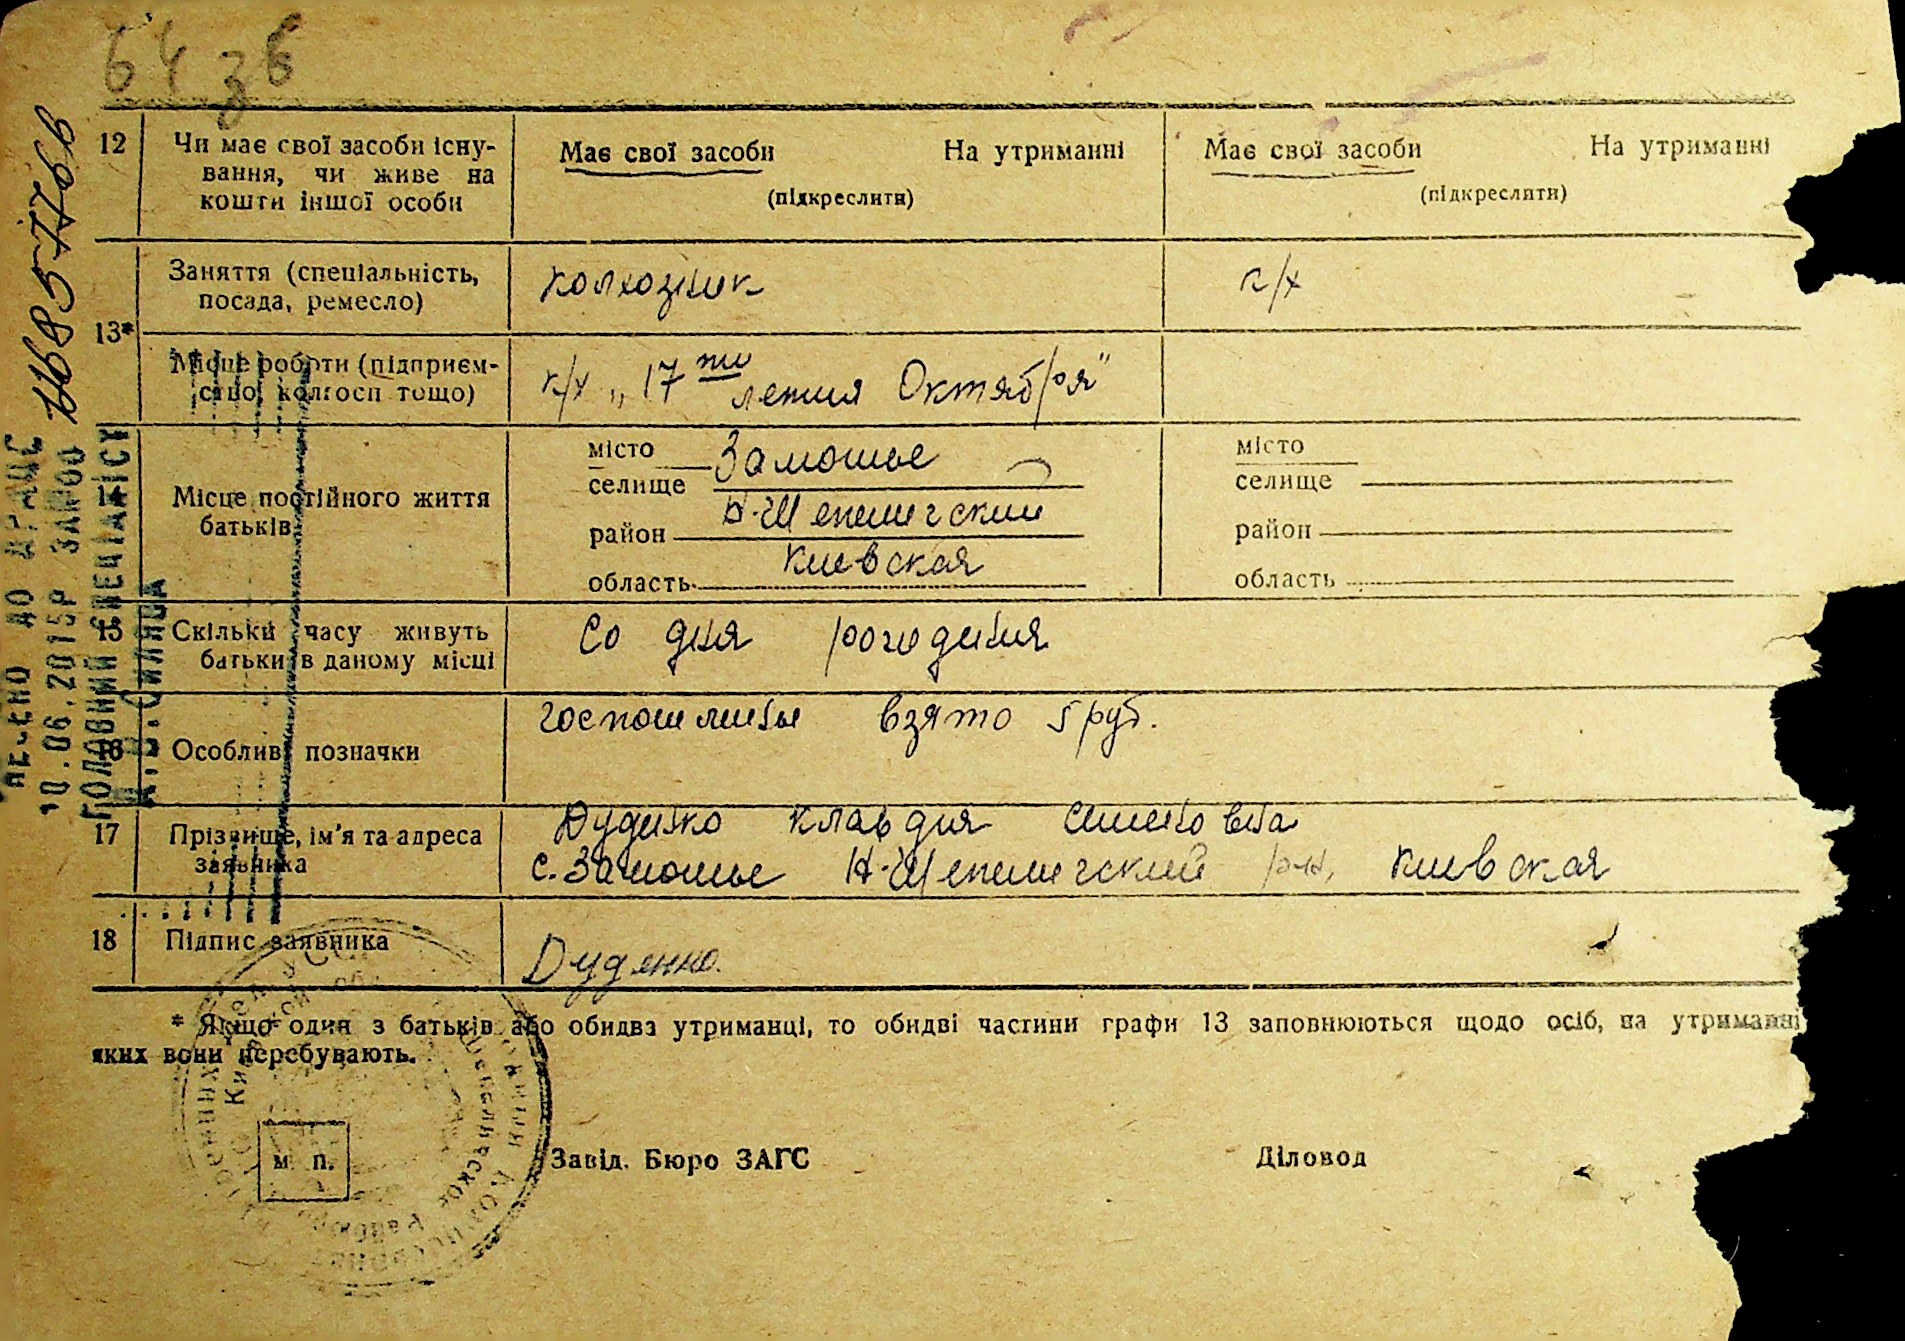 64 зб
12 Чи має свої засоби існу-
вання, чи живе на
кошти іншої особи
Має свої засоби На утриманні
(підкреслити)
Має свої засоби На утриманні
(підкреслити)
13*
Заняття (спеціальність,
посада, ремесло)
колхозник
к/х
Місце роботи (підприєм-
ство, колгосп тощо)
к/х „17 ти летия Октября"
14 Місце постійного життя
батьків
місто
селище
Замошье
район Н-Шепеличский
область Киевская
місто
селище
район
область
15 Скільки часу живуть
батьки в даному місці
Со дня рождения
16 Особливі позначки
госпошлины взято 5 руб.
17 Прізвище, ім'я та адреса
заявника
Дуденко Клавдия Семеновна
с. Замошье Н-Шепеличский р-н, Киевская
18 Підпис заявника
Дуденко.
* Якщо один з батьків або обидва утриманці, то обидві частини графи 13 заповнюються щодо осіб, на утриманні
яких вони перебувають.
М. П.
Завід. Бюро ЗАГС
Діловод
ДО ДРАЦС
10.06.2015Р
ГОЛОВНИЙ СПЕЦІАЛІСТ